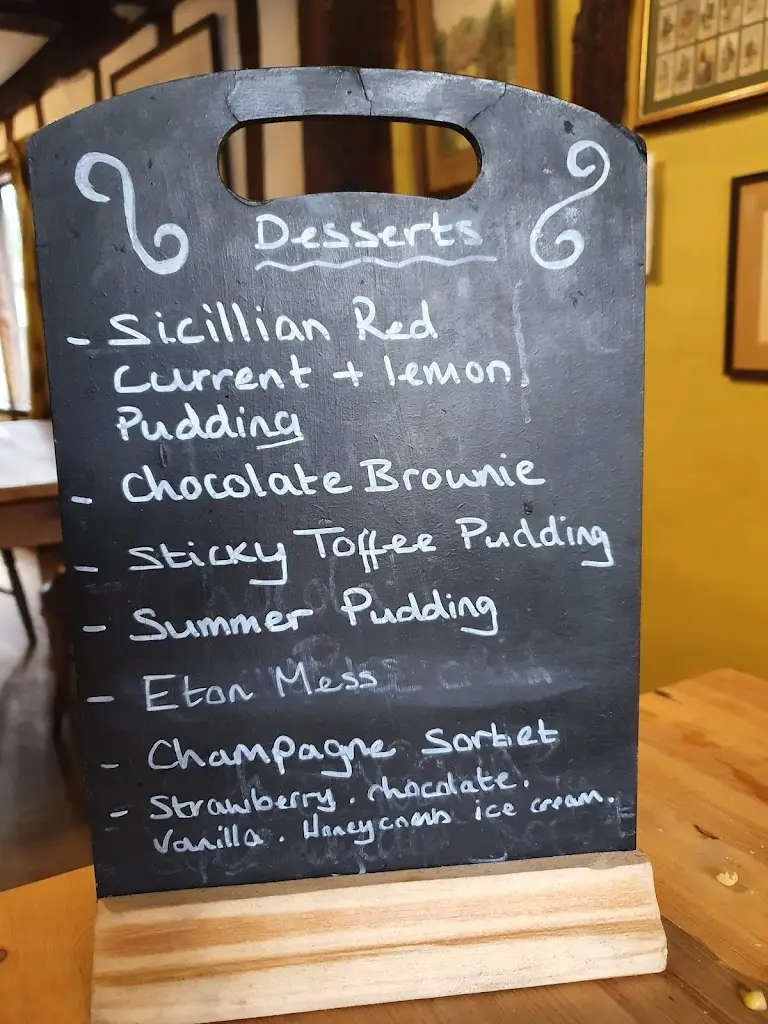 Desserts
- Sicillian Red
Current + lemon
Pudding
- Chocolate Brownie
- Sticky Toffee Pudding
- Summer Pudding
- Eton Mess
- Champagne Sorbet
- Strawberry . chocolate .
Vanilla . Honeycomb ice cream.